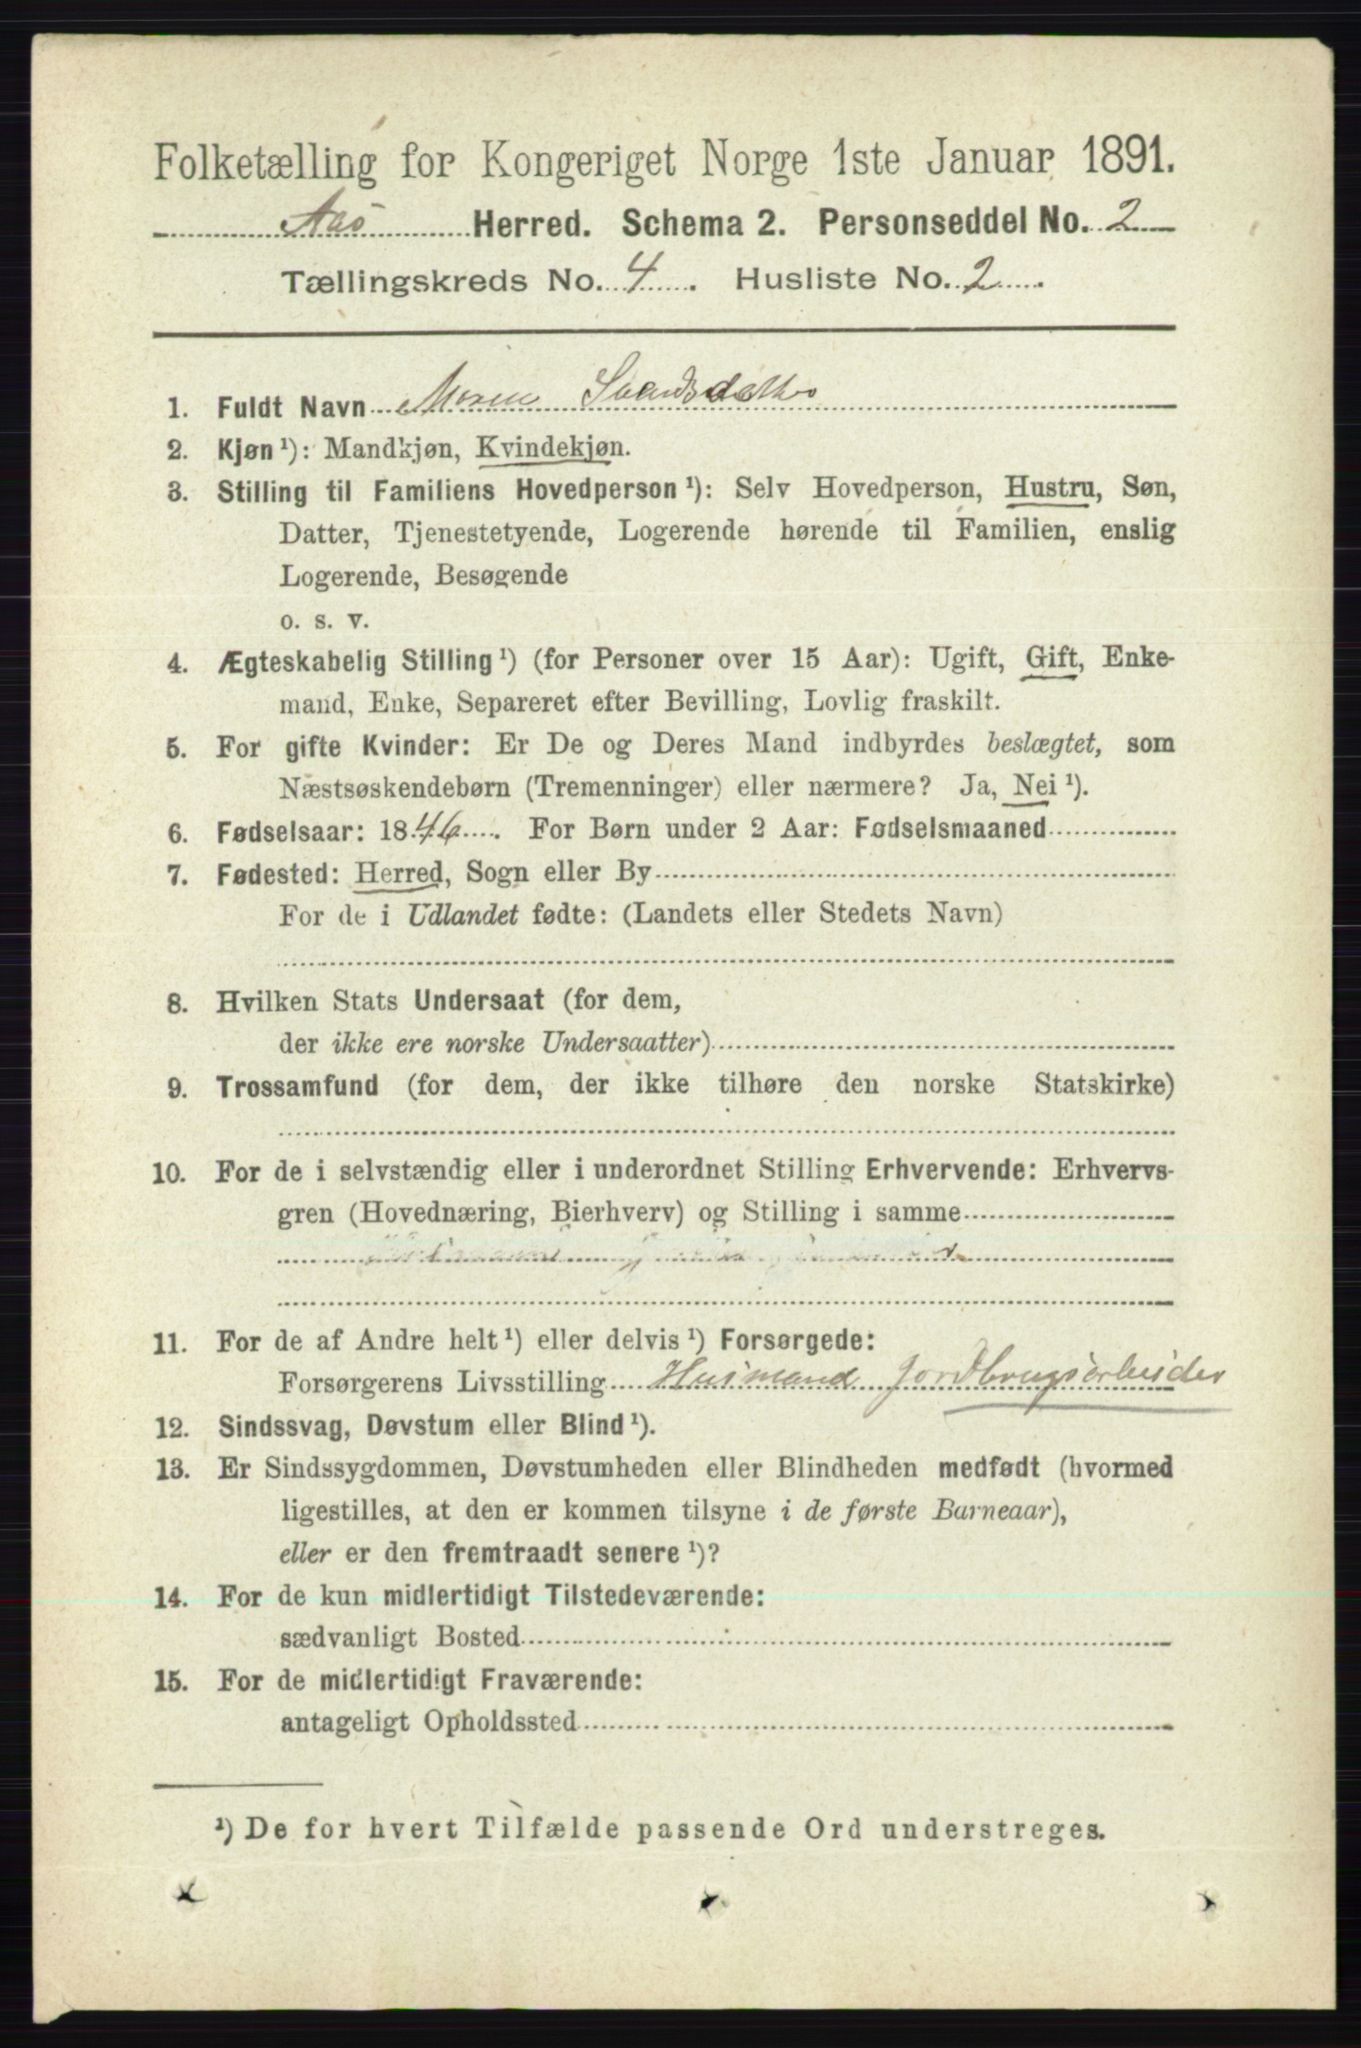 Folketælling for Kongeriget Norge 1ste Januar 1891.
Aas Herred. Schema 2. Personseddel No. 2
Tællingskreds No. 4. Husliste No. 2.
1. Fuldt Navn Maren
2. Kjøn ¹): Mandkjøn, Kvindekjøn.
3. Stilling til Familiens Hovedperson ¹): Selv Hovedperson, Hustru, Søn,
Datter, Tjenestetyende, Logerende hørende til Familien, enslig
Logerende, Besøgende
o. s. v.
4. Ægteskabelig Stilling ¹) (for Personer over 15 Aar): Ugift, Gift, Enke-
mand, Enke, Separeret efter Bevilling, Lovlig fraskilt.
5. For gifte Kvinder: Er De og Deres Mand indbyrdes beslægtet, som
Næstsøskendebørn (Tremenninger) eller nærmere? Ja, Nei ¹).
6. Fødselsaar: 1846. For Børn under 2 Aar: Fødselsmaaned
7. Fødested: Herred, Sogn eller By
For de i Udlandet fødte: (Landets eller Stedets Navn)
8. Hvilken Stats Undersaat (for dem,
der ikke ere norske Undersaatter)
9. Trossamfund (for dem, der ikke tilhøre den norske Statskirke)
10. For de i selvstændig eller i underordnet Stilling Erhvervende: Erhvervs-
gren (Hovednæring, Bierhverv) og Stilling i samme
11. For de af Andre helt ¹) eller delvis ¹) Forsørgede:
Forsørgerens Livsstilling Husmand Jordbrugsarbeider
12. Sindssvag, Døvstum eller Blind ¹).
13. Er Sindssygdommen, Døvstumheden eller Blindheden medfødt (hvormed
ligestilles, at den er kommen tilsyne i de første Barneaar),
eller er den fremtraadt senere ¹)?
14. For de kun midlertidigt Tilstedeværende:
sædvanligt Bosted
15. For de midlertidigt Fraværende:
antageligt Opholdssted
¹) De for hvert Tilfælde passende Ord understreges.